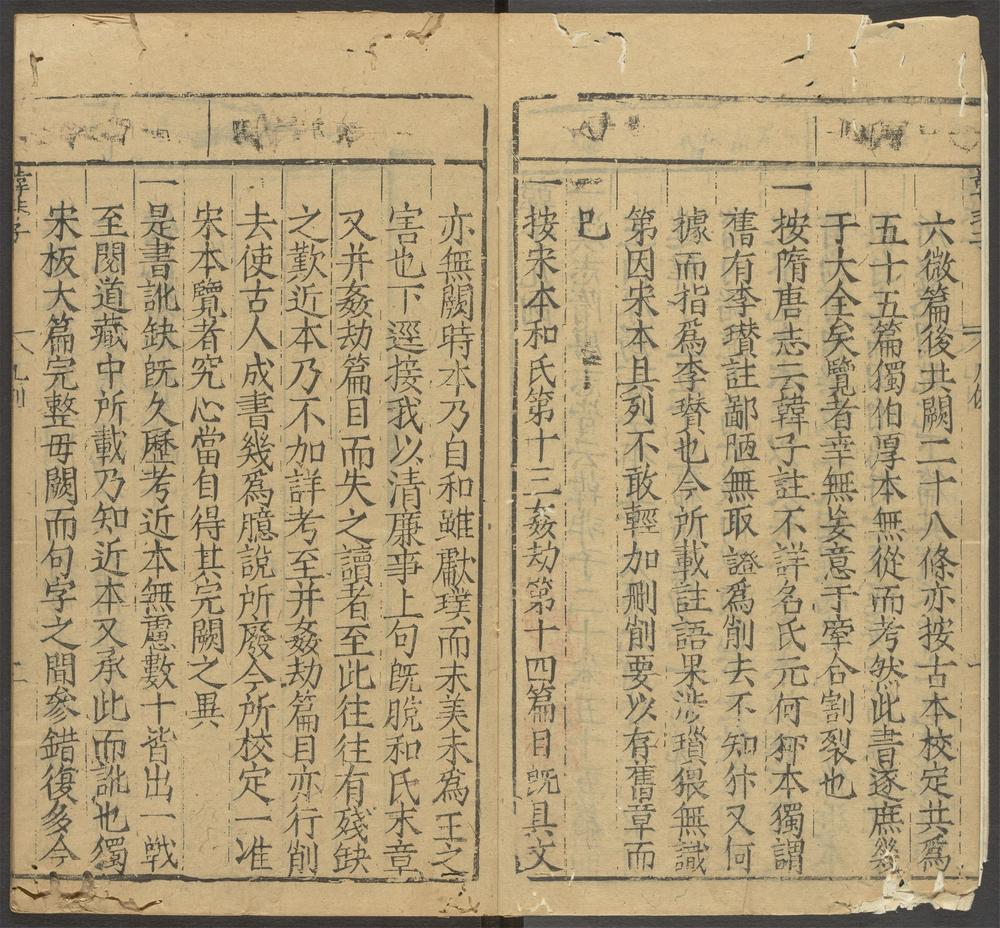 六微篇後共闕二十八條亦按古本校定共為
五十五篇獨伯厚本無從而考然此書逐庶幾
于大全矣覽者幸無妄意于牽合割裂也
一按隋唐志云韓子註不詳名氏元何犿本獨謂
舊有李瓚註鄙陋無取證為削去不知犿又何
據而指為李瓚也今所載註語果涉瑣猥無識
第因宋本具列不敢輕加刪削要以存舊章而
已
一按宋本和氏第十三姦劫第十四篇目既具文
亦無闕時本乃自和雖獻璞而未美未為王之
害也下逕接我以清廉事上句既脫和氏末章
又并姦劫篇目而失之讀者至此往往有殘缺
之歎近本乃不加詳考至并姦劫篇目亦行削
去使古人成書幾為臆說所廢今所校定一准
宋本覽者究心當自得其完闕之異
一是書訛缺既久歷考近本無慮數十皆出一戰
至閱道藏中所載乃知近本又承此而訛也獨
宋板大篇完整毋闕而句字之間參錯復多今
韓非子